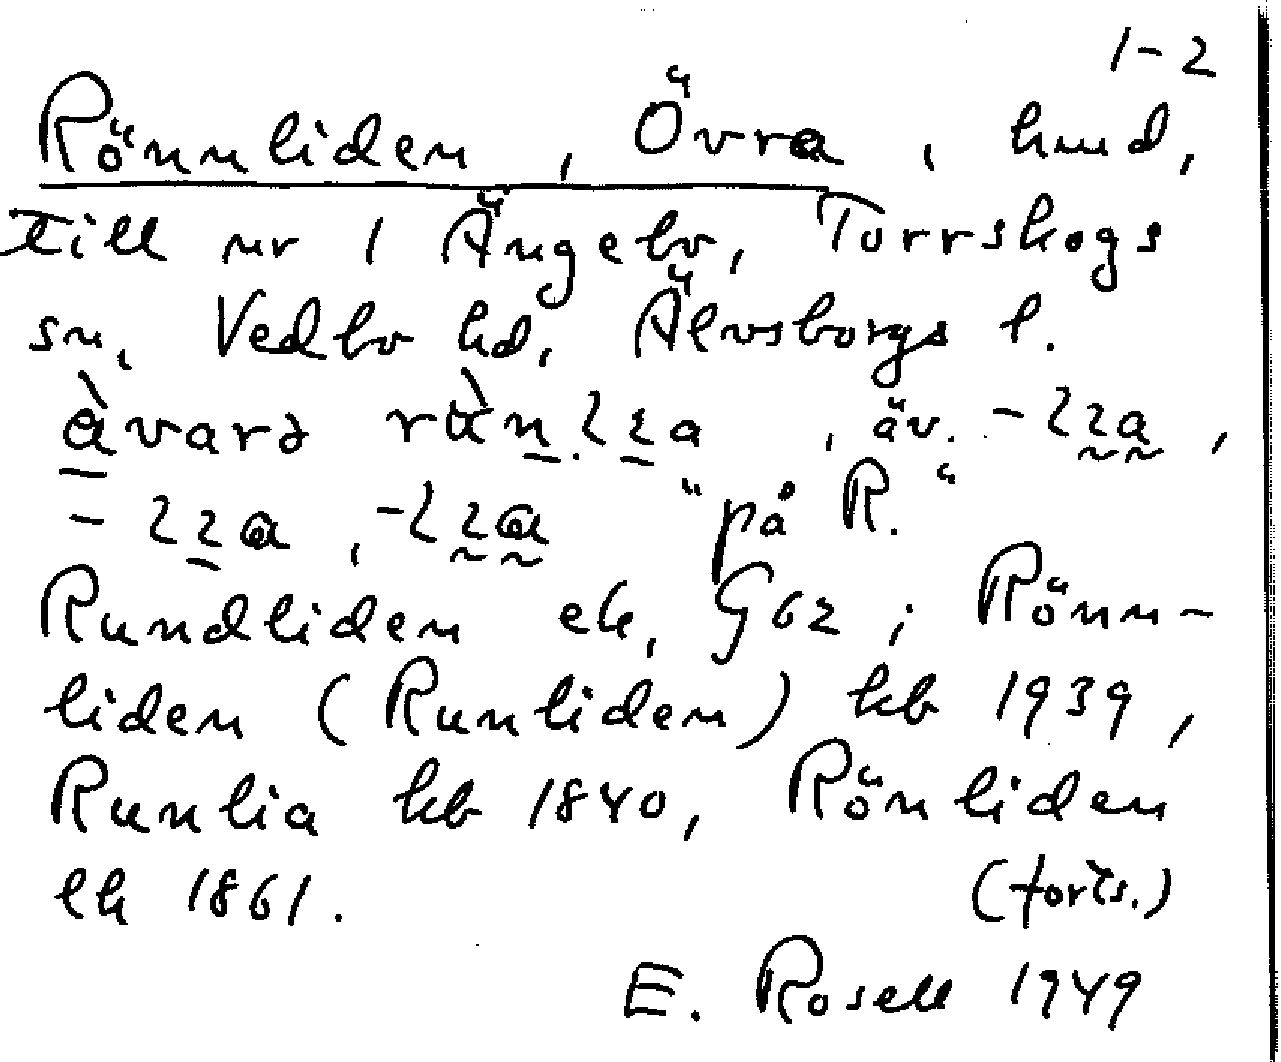 1-2
Rönnliden, Övra, hmd,
till nr 1 Ängebo, Torrskogs
sn, Vedbo hd, Älvsborgs l.
, äv.
"på R."
Rundliden ek, G62; Rönn-
liden (Runliden) kb 1939,
Runlia kb 1840, Rönliden
ek 1861.
(forts.)
E. Rosell 1949